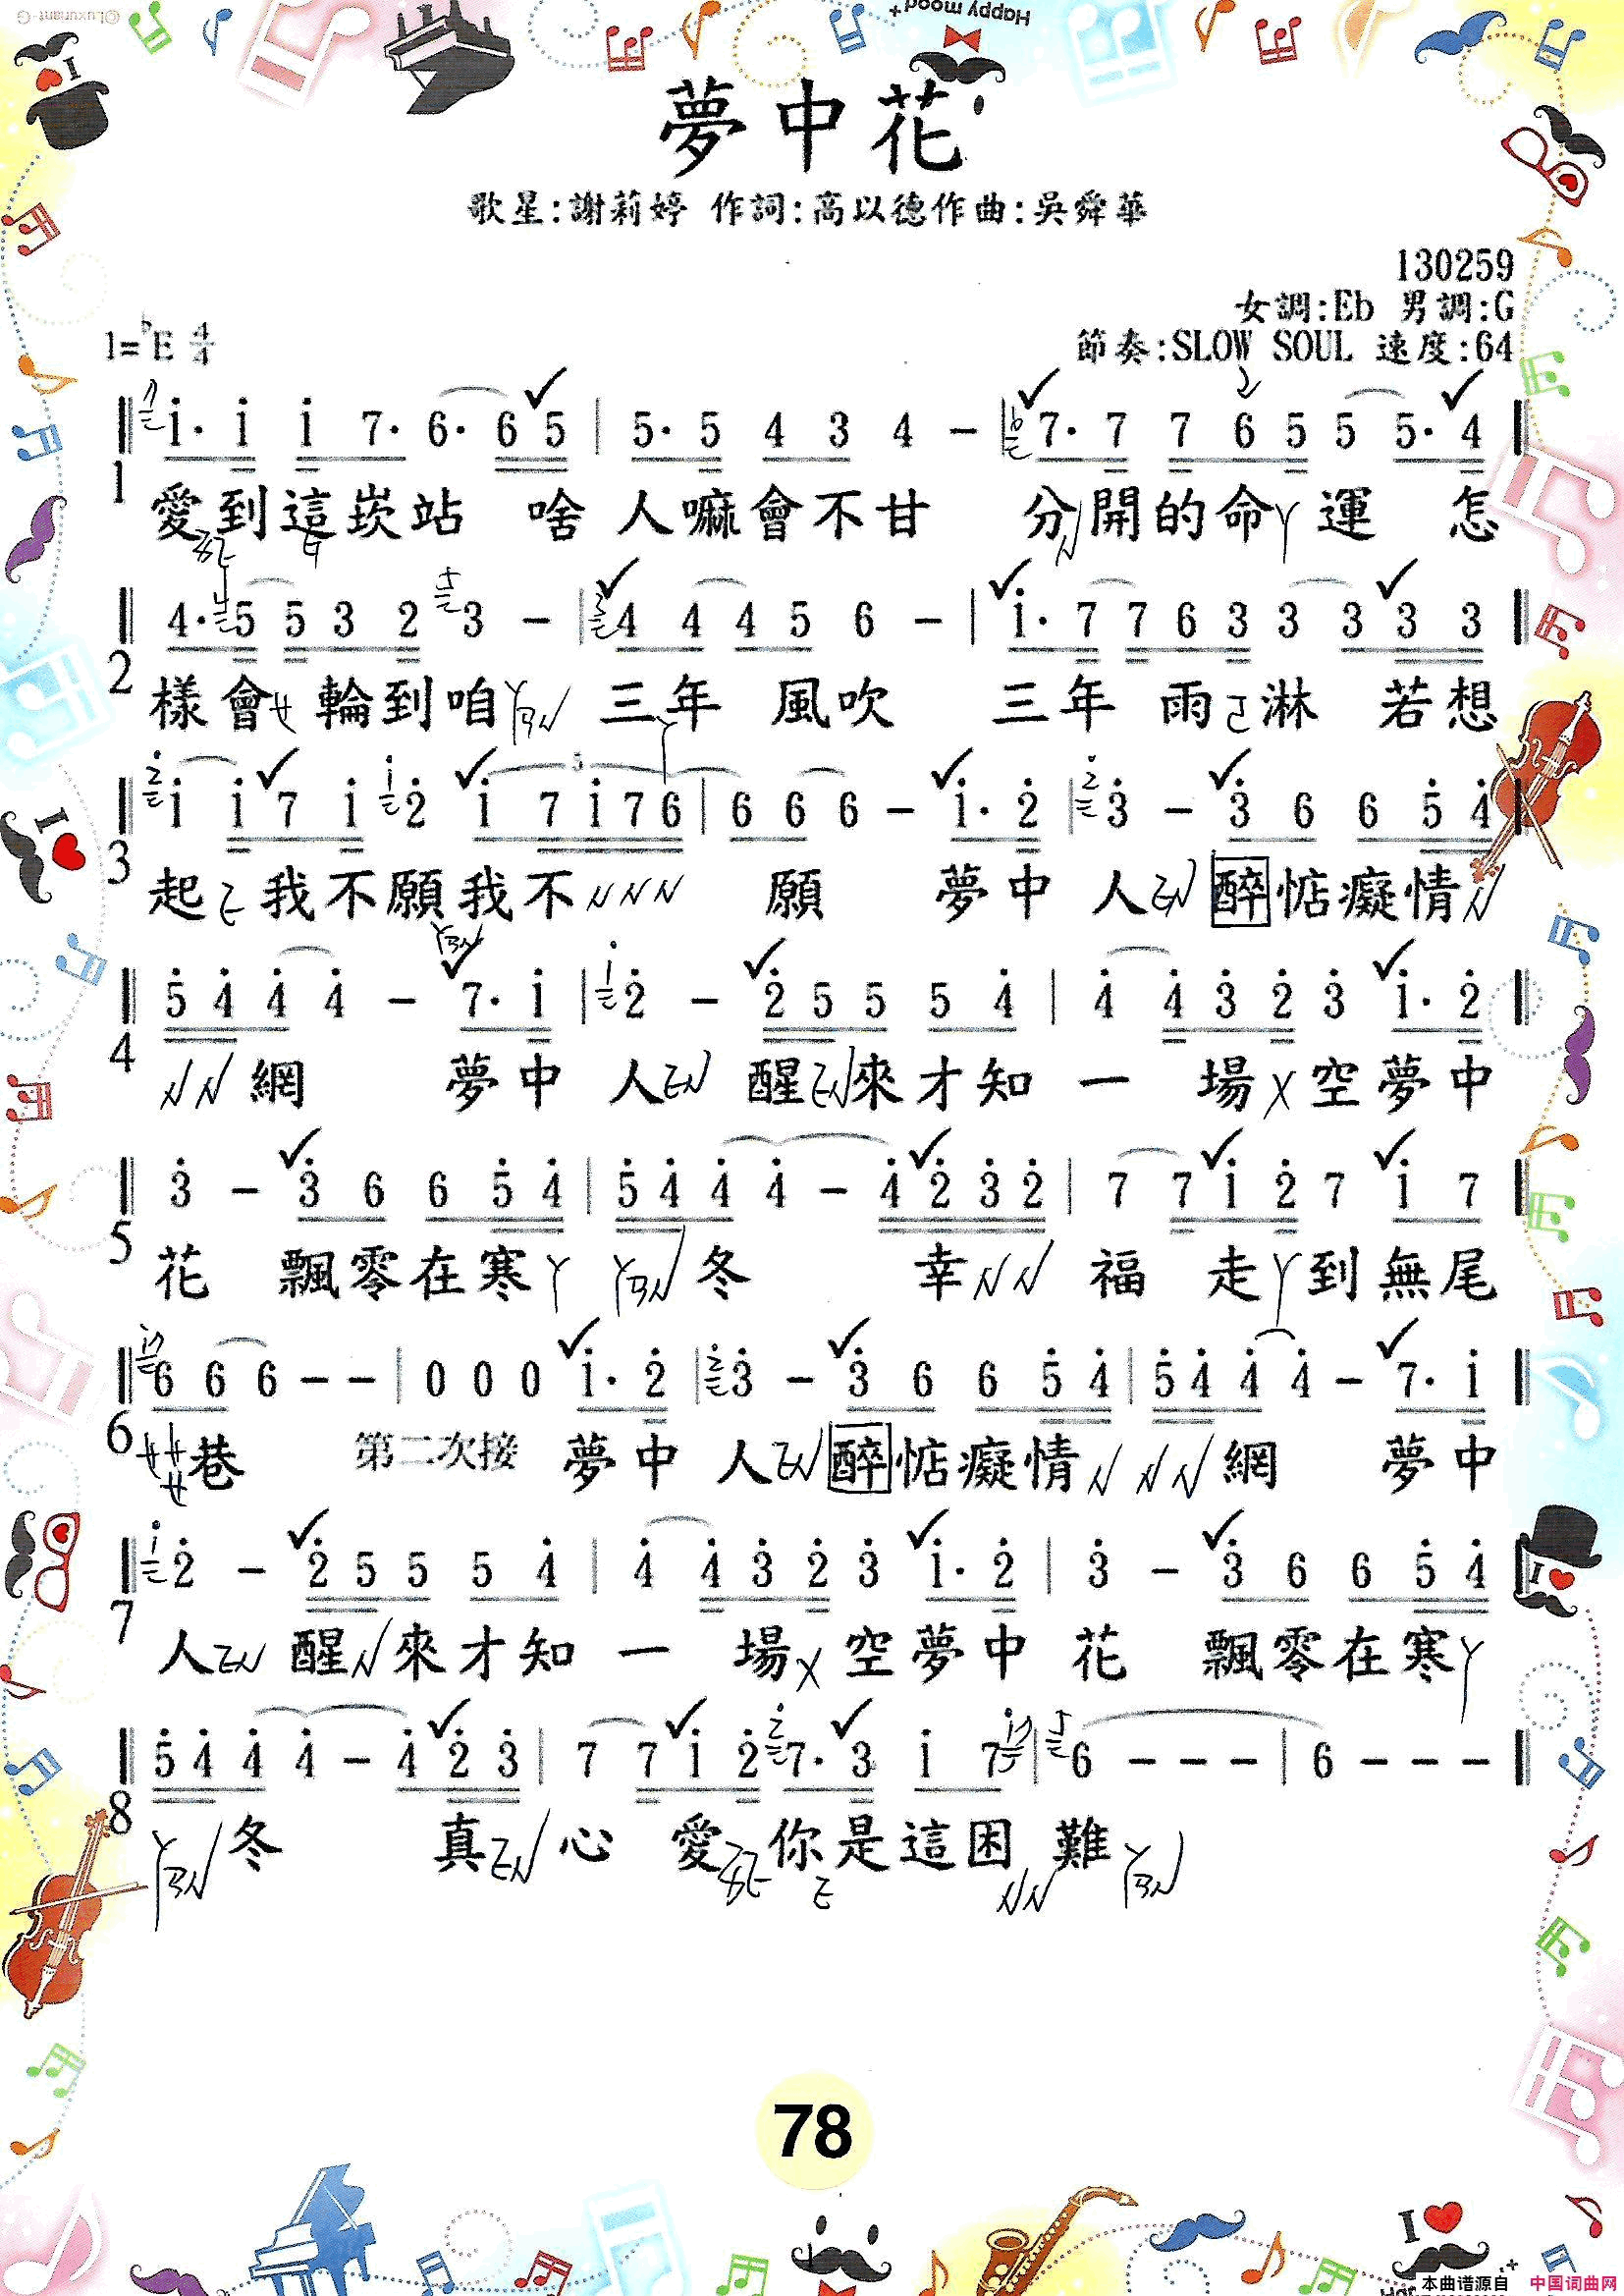 Happy mood+
夢中花
歌星:謝莉婷 作詞:高以德作曲:吳舜華
130259
女調:Eb 男調:G
1=♭E 4/4
節奏:SLOW SOUL 速度:64
1̇· 1̇ 1̇ 7· 6· 6 5 | 5· 5 4 3 4 - | 7· 7 7 6 5 5 5· 4
1 愛到這崁站 啥人嘛會不甘 分開的命ㄚ運 怎
4· 5 5 3 2 3 - | 4 4 4 5 6 - | 1̇· 7 7 6 3 3 3 3 3
2 樣會 輪到咱 三年風吹 三年雨 淋 若想
1̇ 1̇ 7 1̇ 2̇ 1̇ 7 1̇ 7 6 | 6 6 6 - 1̇· 2̇ | 3̇ - 3̇ 6 6 5̇ 4̇
3 起ㄛ我不願我不ㄣㄣㄣ 願 夢中人 醉惦癡情ㄣ
5̇ 4̇ 4̇ 4̇ - 7· 1̇ | 2̇ - 2̇ 5 5 5 4̇ | 4̇ 4̇ 3̇ 2̇ 3̇ 1̇· 2̇
4 ㄣㄣ網 夢中人 醒 來才知一 場ㄨ空夢中
3̇ - 3̇ 6 6 5̇ 4̇ | 5̇ 4̇ 4̇ 4̇ - 4̇ 2̇ 3̇ 2̇ | 7 7 1̇ 2̇ 7 1̇ 7
5 花 飄零在寒ㄚ 冬 幸ㄣㄣ 福 走ㄚ到無尾
6 6 6 - - | 0 0 0 1̇· 2̇ | 3̇ - 3̇ 6 6 5̇ 4̇ | 5̇ 4̇ 4̇ 4̇ - 7· 1̇
6 巷 第二次接 夢中人 醉惦癡情ㄣ ㄣㄣ網 夢中
2̇ - 2̇ 5 5 5 4̇ | 4̇ 4̇ 3̇ 2̇ 3̇ 1̇· 2̇ | 3̇ - 3̇ 6 6 5̇ 4̇
7 人 醒ㄣ來才知一 場ㄨ空夢中花 飄零在寒ㄚ
5̇ 4̇ 4̇ 4̇ - 4̇ 2̇ 3̇ | 7 7 1̇ 2̇ 7· 3̇ 1̇ 7 | 6 - - - | 6 - - -
8 冬 真 心 愛 你是這困 難
78
本曲谱源自 中国词曲网